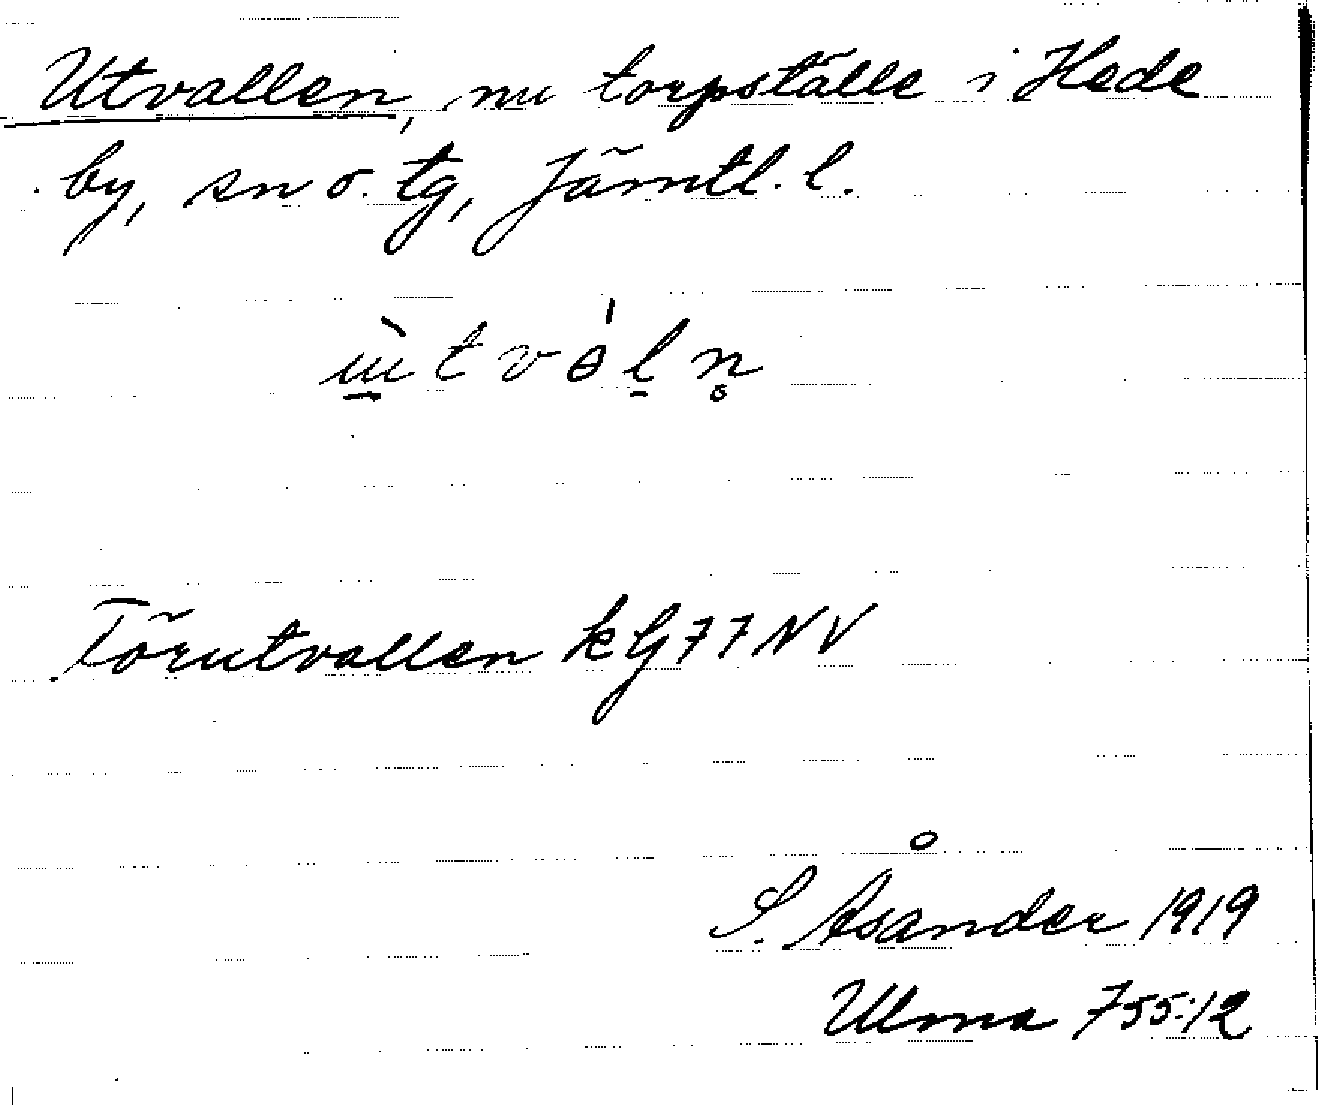 Utvallen, nu torpställe i Hede
by, sn o. tg, Jämtl. l.
Törutvallen k G 77 NV
S. Åsander 1919
Ulma 755:12